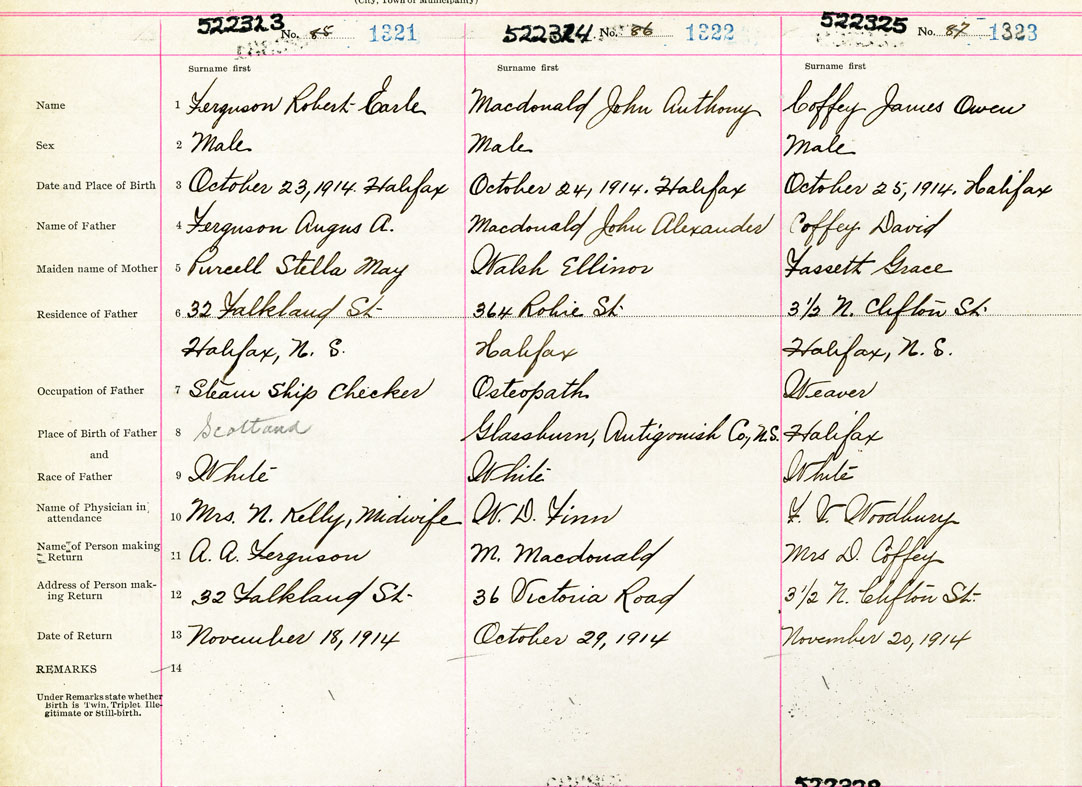 (City, Town or Municipality)
522323 No. 85 1321 522324 No. 86 1322 522325 No. 87 1323
Surname first Surname first Surname first
Name 1 Ferguson Robert Earle Macdonald John Anthony Coffey James Owen
Sex 2 Male Male Male
Date and Place of Birth 3 October 23, 1914. Halifax October 24, 1914. Halifax October 25, 1914. Halifax
Name of Father 4 Ferguson Angus A. Macdonald John Alexander Coffey David
Maiden name of Mother 5 Purcell Stella May Walsh Ellinor Fassett Grace
Residence of Father 6 32 Falkland St. 364 Robie St. 3 1/2 N. Clifton St.
Halifax, N. S. Halifax Halifax, N. S.
Occupation of Father 7 Steam Ship Checker Osteopath Weaver
Place of Birth of Father 8 Scotland Glassburn, Antigonish Co., N.S. Halifax
and
Race of Father 9 White White White
Name of Physician in
attendance 10 Mrs. N. Kelly, Midwife W. D. Finn F. V. Woodbury
Name of Person making
Return 11 A. A. Ferguson M. Macdonald Mrs D. Coffey
Address of Person mak-
ing Return 12 32 Falkland St. 36 Victoria Road 3 1/2 N. Clifton St.
Date of Return 13 November 18, 1914 October 29, 1914 November 20, 1914
REMARKS 14
Under Remarks state whether
Birth is Twin, Triplet Ille-
gitimate or Still-birth.